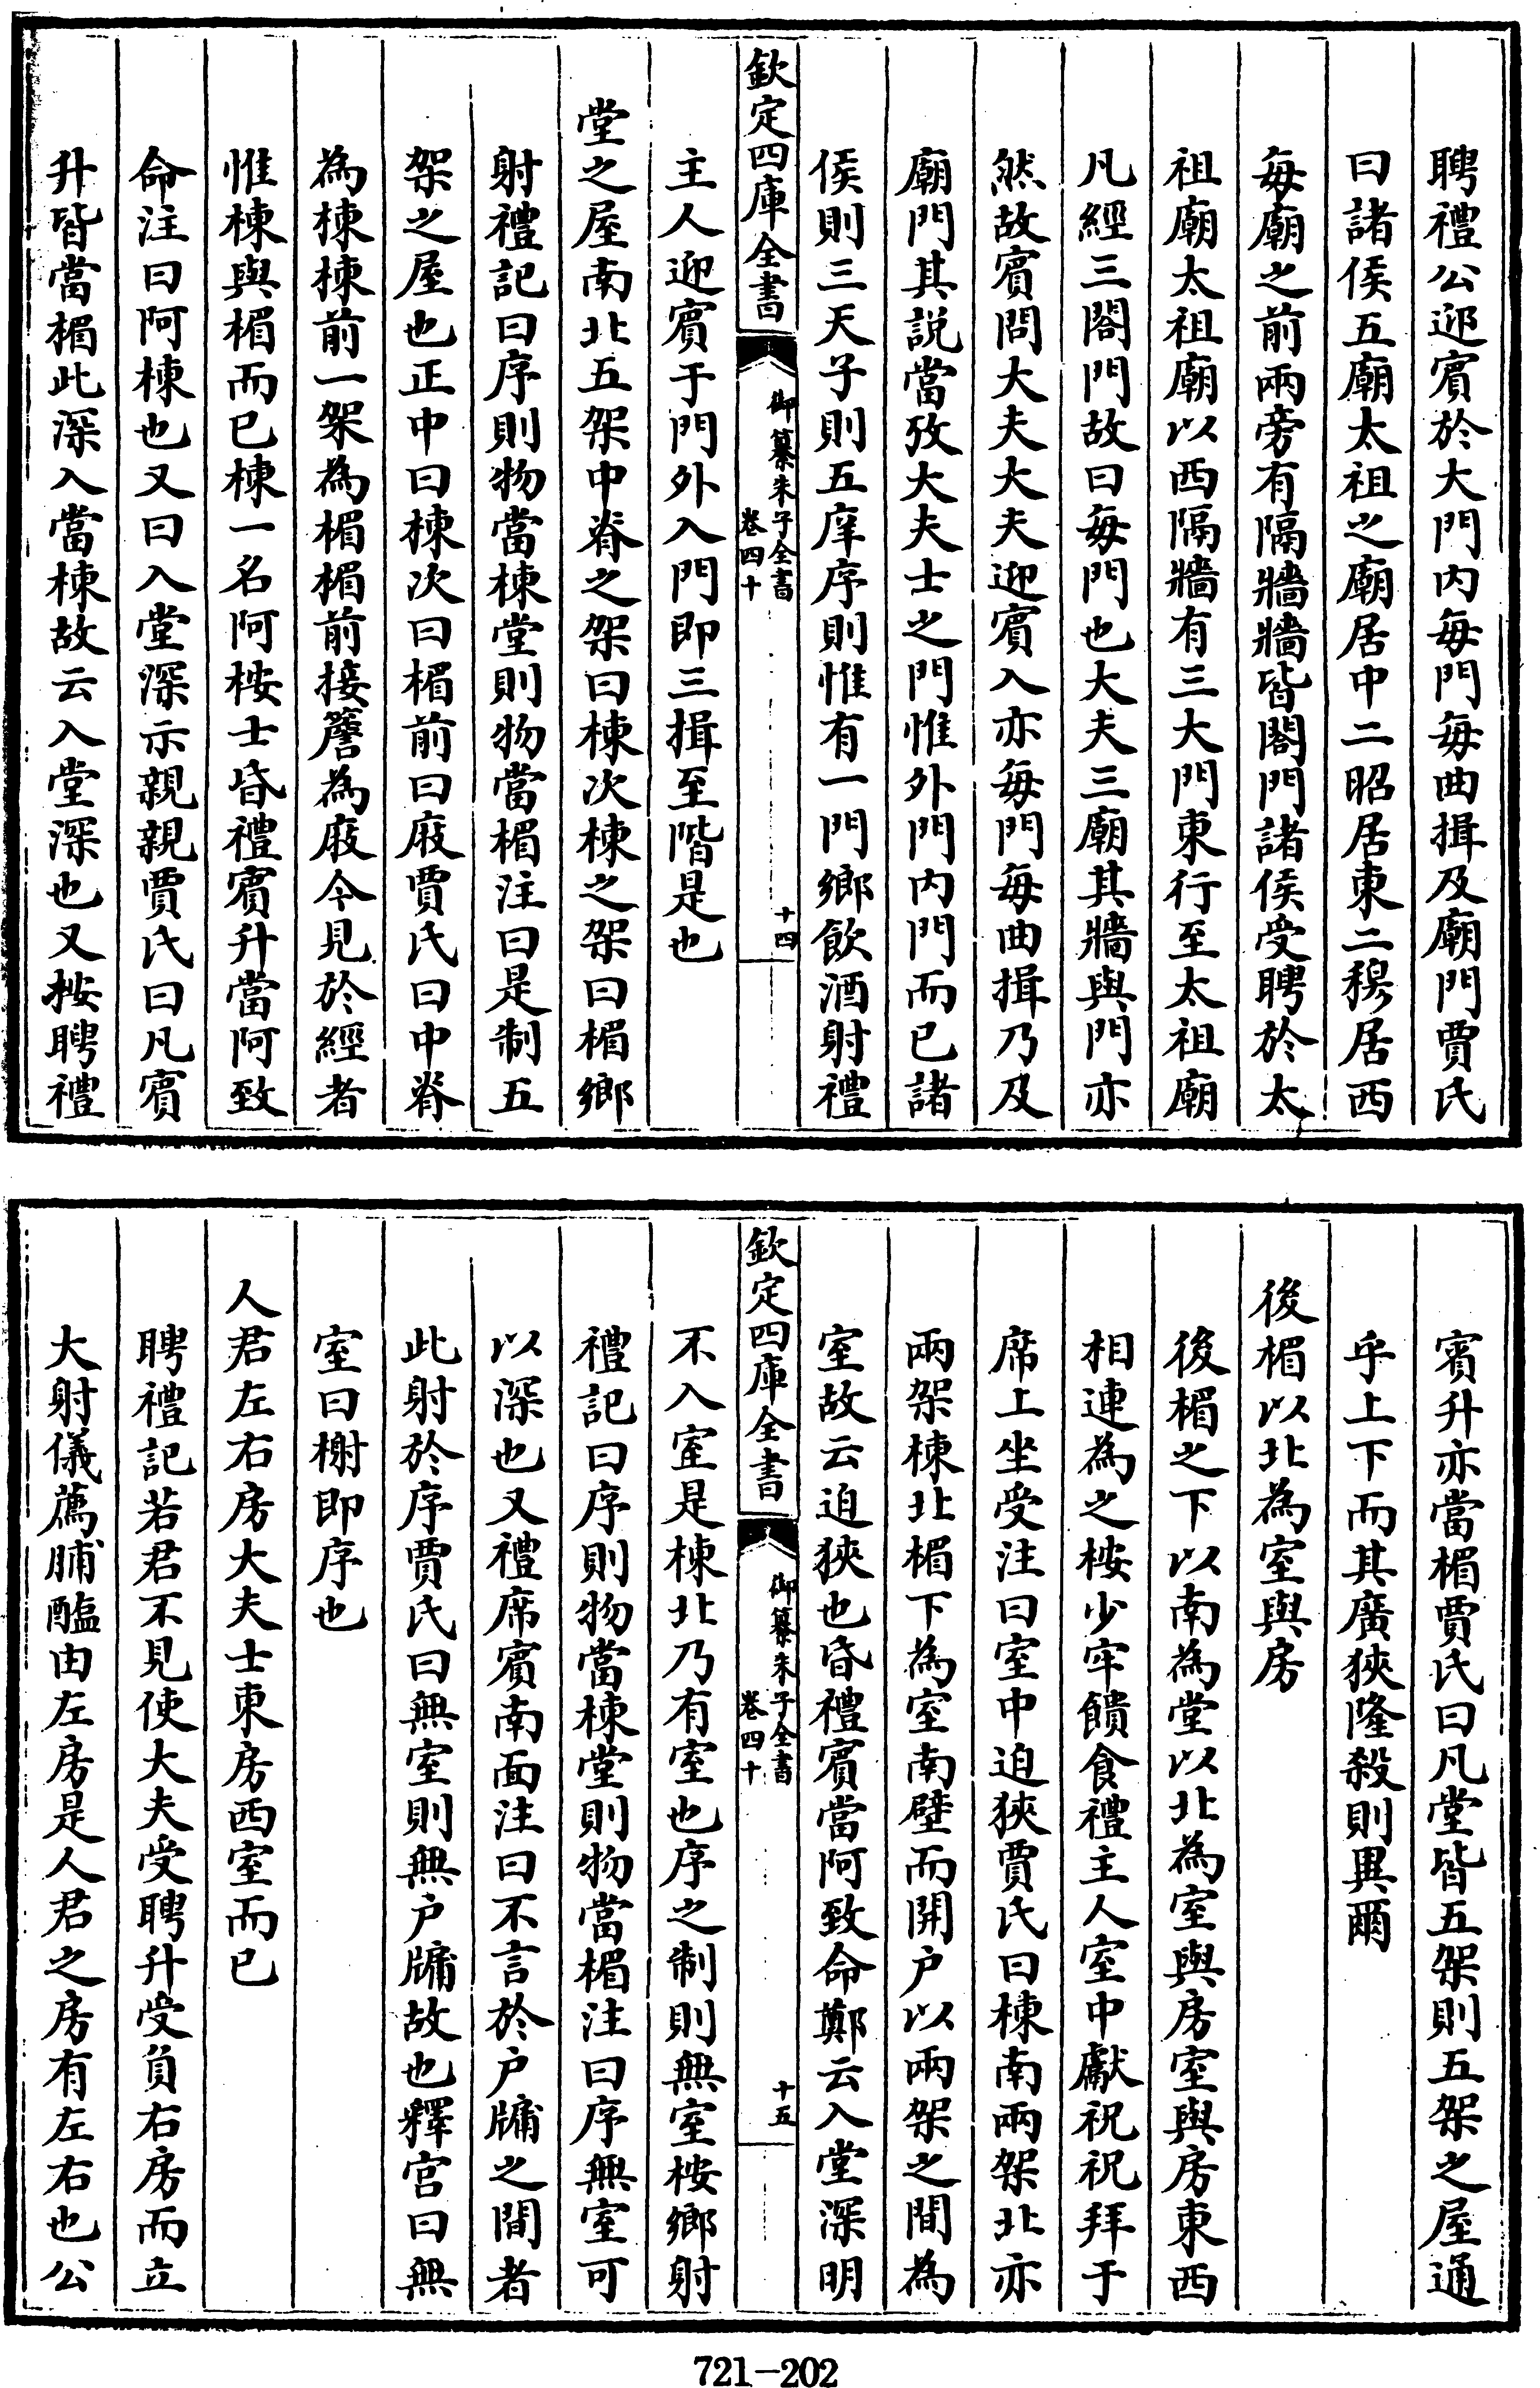 聘禮公迎賓於大門内每門每曲揖及廟門賈氏
曰諸侯五廟太祖之廟居中二昭居東二穆居西
每廟之前兩旁有隔牆牆皆閤門諸侯受聘於太
祖廟太祖廟以西隔牆有三大門東行至太祖廟
凡經三閤門故曰每門也大夫三廟其牆與門亦
然故賓問大夫大夫迎賓入亦每門每曲揖乃及
廟門其説當攷大夫士之門惟外門内門而已諸
侯則三天子則五庠序則惟有一門鄉飲酒射禮
欽定四庫全書
御纂朱子全書
卷四十
十四
主人迎賓于門外入門即三揖至階是也
堂之屋南北五架中脊之架曰棟次棟之架曰楣鄉
射禮記曰序則物當棟堂則物當楣注曰是制五
架之屋也正中曰棟次曰楣前曰庪賈氏曰中脊
為棟棟前一架為楣楣前接簷為庪今見於經者
惟棟與楣而已棟一名阿桉士昏禮賓升當阿致
命注曰阿棟也又曰入堂深示親親賈氏曰凡賓
升皆當楣此深入當棟故云入堂深也又桉聘禮
賓升亦當楣賈氏曰凡堂皆五架則五架之屋通
乎上下而其廣狹隆殺則異爾
後楣以北為室與房
後楣之下以南為堂以北為室與房室與房東西
相連為之桉少牢饋食禮主人室中獻祝祝拜于
席上坐受注曰室中迫狹賈氏曰棟南兩架北亦
兩架棟北楣下為室南壁而開户以兩架之間為
室故云迫狹也昏禮賓當阿致命鄭云入堂深明
欽定四庫全書
御纂朱子全書
卷四十
十五
不入室是棟北乃有室也序之制則無室桉鄉射
禮記曰序則物當棟堂則物當楣注曰序無室可
以深也又禮席賓南面注曰不言於户牖之間者
此射於序賈氏曰無室則無户牖故也釋宮曰無
室曰榭即序也
人君左右房大夫士東房西室而已
聘禮記若君不見使大夫受聘升受負右房而立
大射儀薦脯醢由左房是人君之房有左右也公
721-202